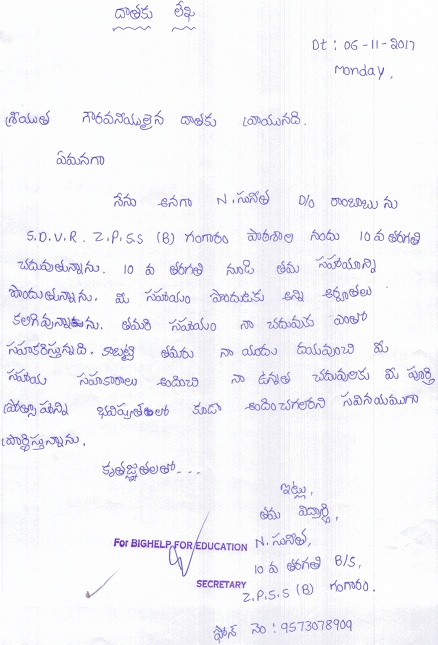 దాతకు లేఖ
Dt : 06-11-2017
Monday.
శ్రీయుత గౌరవనీయులైన దాతకు వ్రాయునది.
ఏమనగా
నేను అనగా N. సునీత D/o రాంబాబు ను
S.D.V.R. Z.P.S.S (B) గంగారం పాఠశాల నందు 10 వ తరగతి
చదువుతున్నాను. 10 వ తరగతి నుండి తమ సహాయాన్ని
పొందుతున్నాను. మీ సహాయం పొందుటకు అన్ని అర్హతలు
కలిగివున్నాను. తమరి సహాయం నా చదువుకు ఎంతో
సహకరిస్తున్నది. కాబట్టి తమరు నా యందు దయవుంచి మీ
సహాయ సహకారాలు అందించి నా ఉన్నత చదువులకు మీ పూర్తి
ప్రోత్సాహాన్ని భవిష్యత్‌లో కూడా అందించగలరని సవినయముగా
ప్రార్థిస్తున్నాను.
కృతజ్ఞతలతో...
ఇట్లు,
తమ విద్యార్థి,
For BIGHELP FOR EDUCATION N. సునీత,
10 వ తరగతి B/S,
SECRETARY Z.P.S.S (B) గంగారం.
ఫోన్ నెం : 9573078909